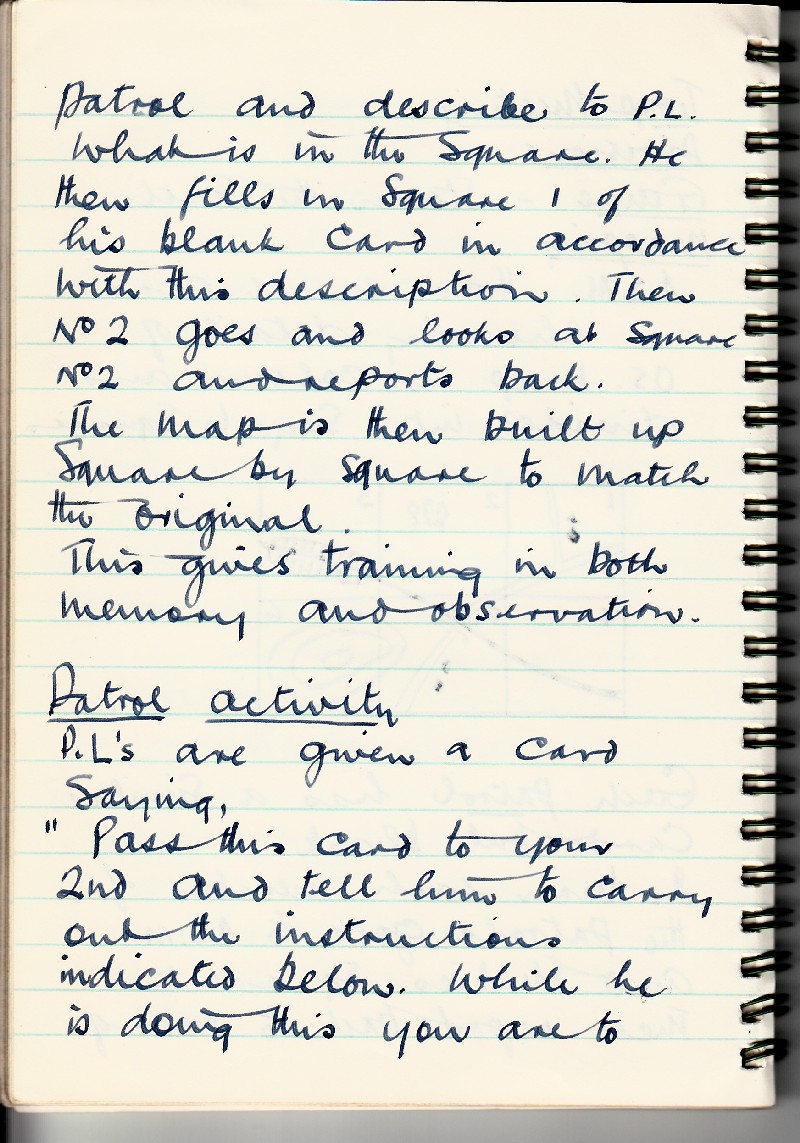 Patrol and describe to P.L.
What is in the Square. He
then fills in Square 1 of
his blank Card in accordance
with this description. Then
No 2 goes and looks at Square
No 2 and reports back.
The map is then built up
Square by Square to match
the original.
This gives training in both
memory and observation.
Patrol activity
P.L's are given a Card
Saying,
" Pass this Card to your
2nd and tell him to carry
out the instructions
indicated below. While he
is doing this you are to